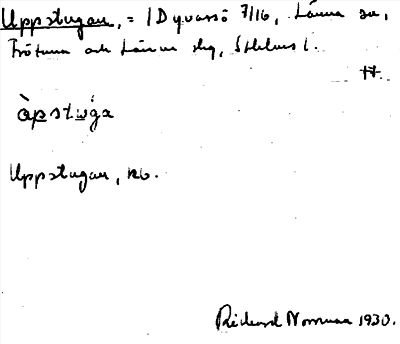 Uppstugan, = 1 Dyvassö 7/16, Länna sn,
Frötuna och Länna skg, Sthlms l.
tt.
àpstẉġa
Uppstugan, nb.
Rickard Norrman 1930.